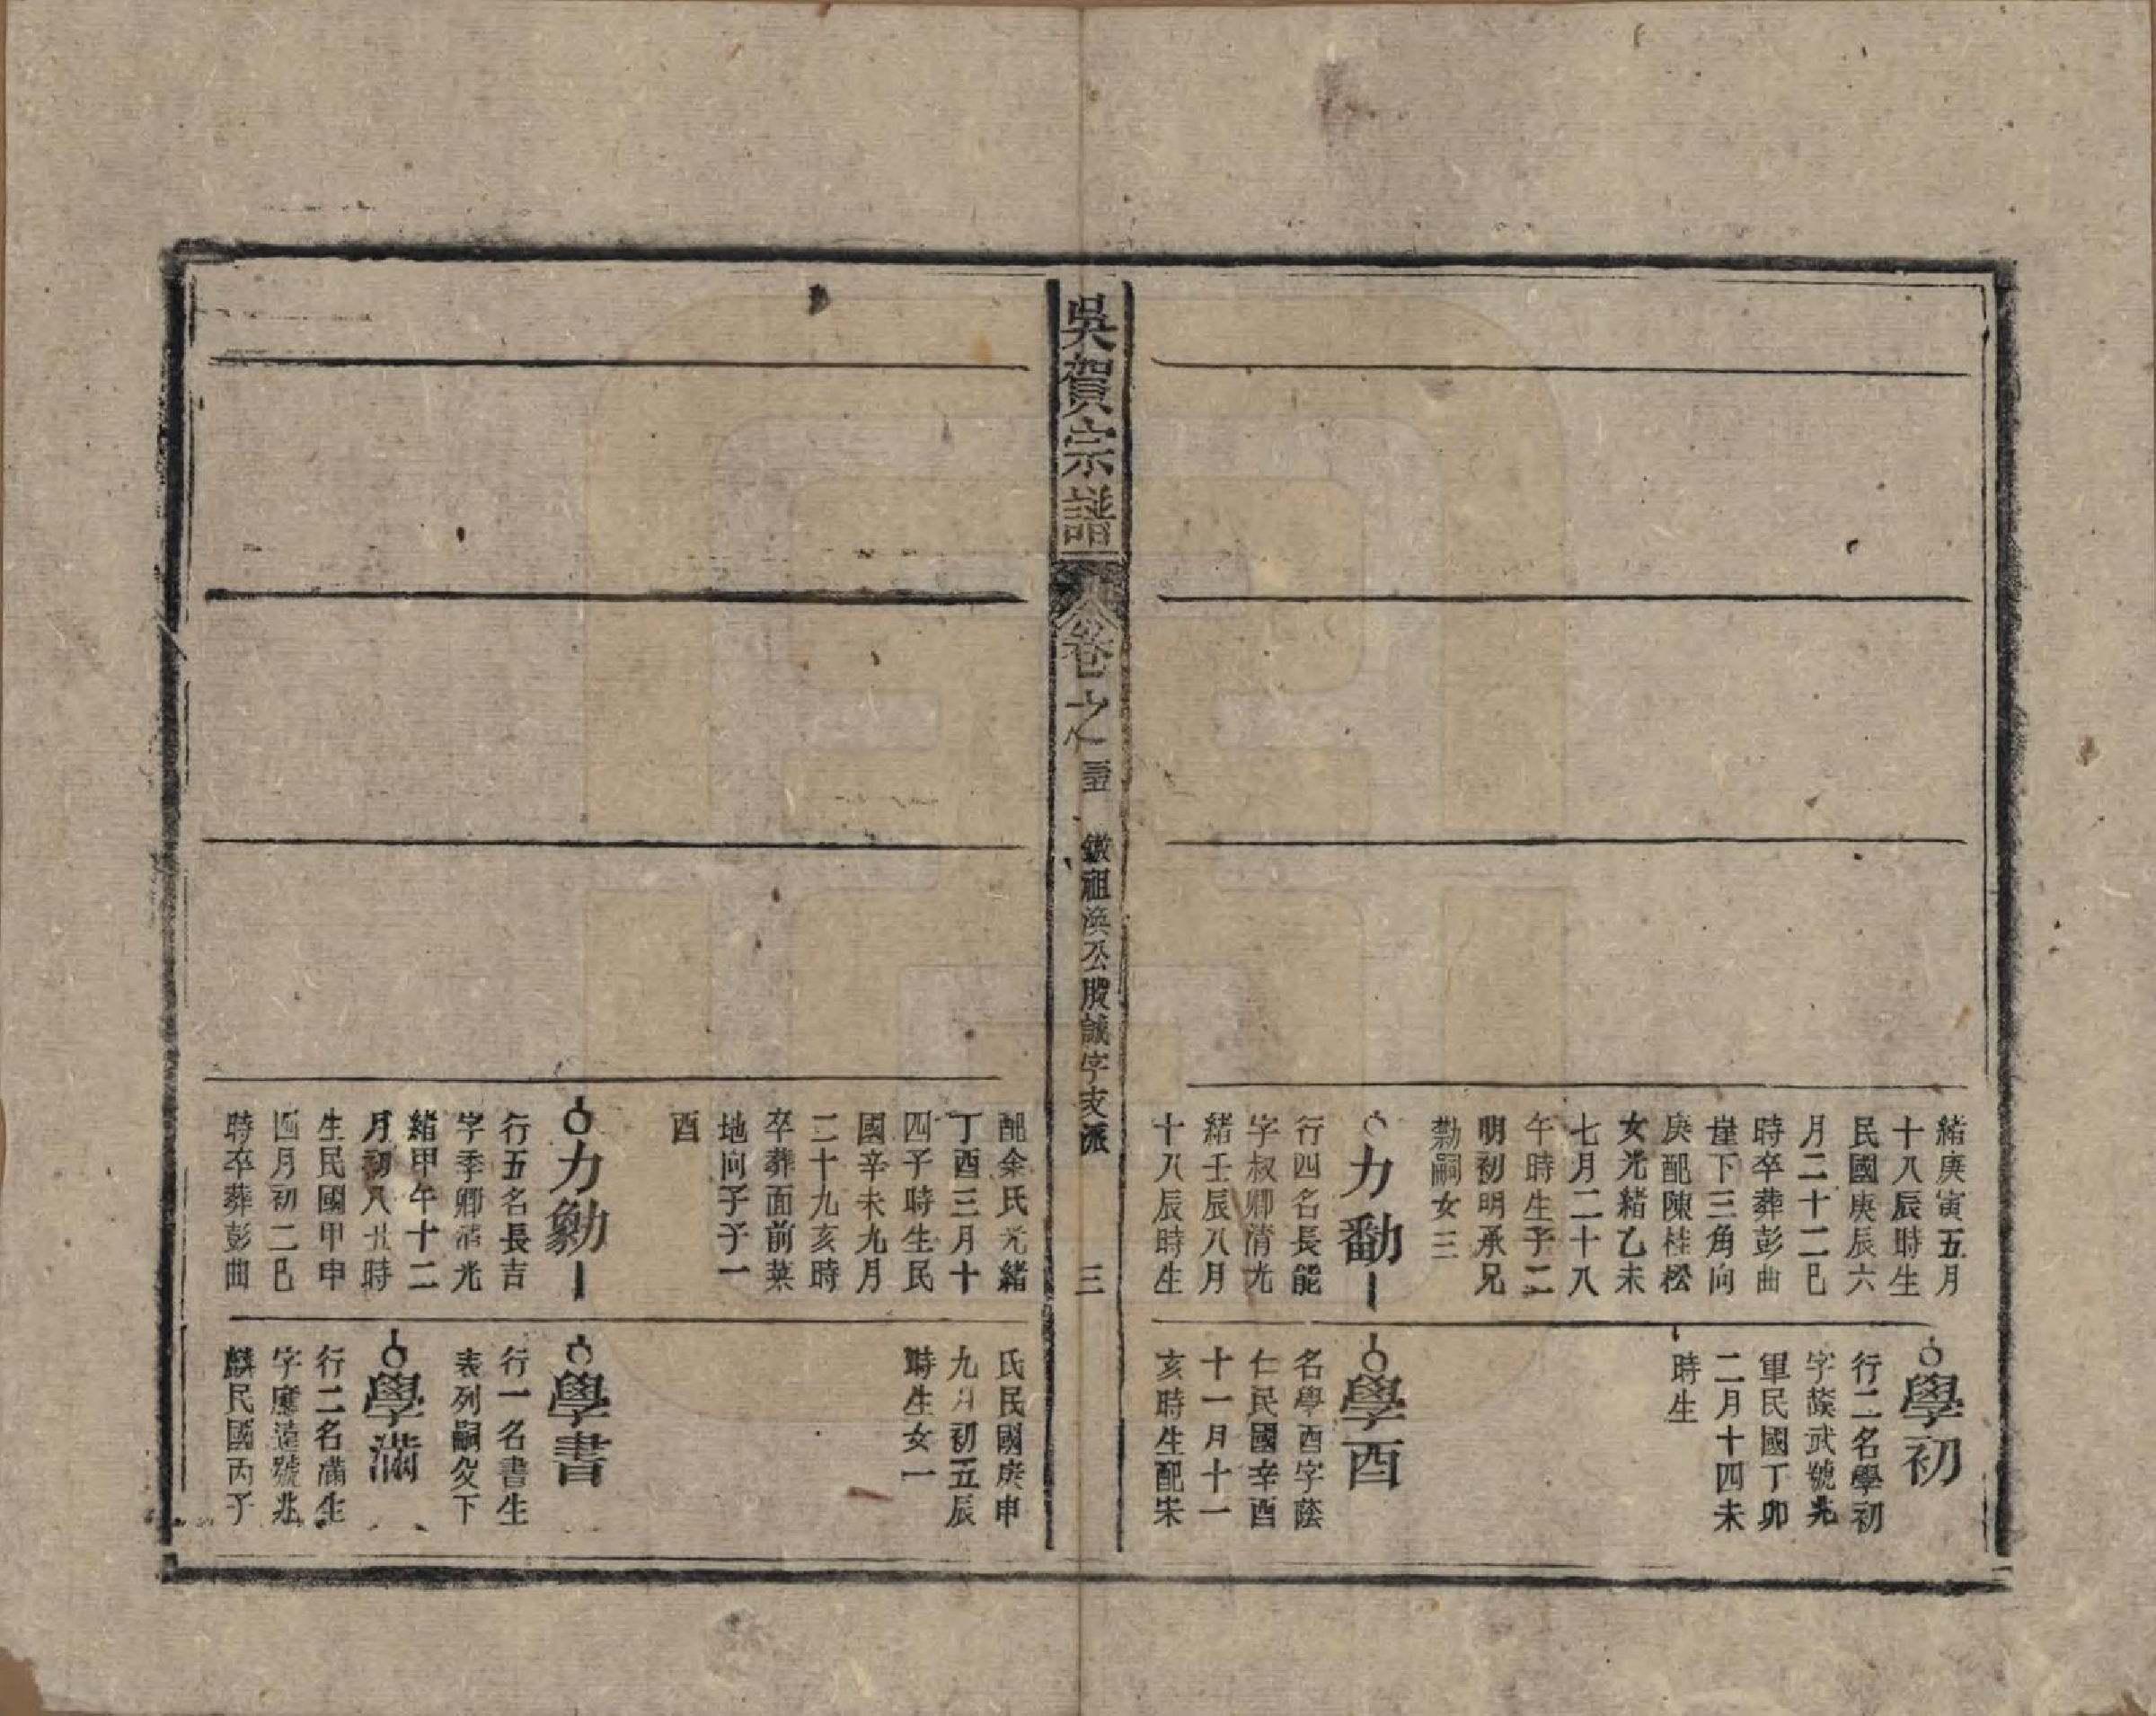 緒庚寅五月
十八辰時生
民國庚辰六
月二十二巳
時卒葬彭曲
崖下三角向
庚配陳桂松
女光緒乙未
七月二十八
午時生子二
明初明承兄
勷嗣女三
力勫
行四名長能
字叔卿清光
緒壬辰八月
十八辰時生
學初
行二名學初
字蔭武號光
軍民國丁卯
二月十四未
時生
學酉
名學酉字蔭
仁民國辛酉
十一月十一
亥時生配宋
吳賀宗譜
卷之
祖渙公股誠字支派
三
配余氏光緒
丁酉三月十
四子時生民
國辛未九月
二十九亥時
卒葬面前菜
地向子子一
酉
力勨
行五名長吉
字季卿清光
緒甲午十二
月初八丑時
生民國甲申
四月初二巳
時卒葬彭曲
氏民國庚申
九月初五辰
時生女一
學書
行一名書生
表列嗣父下
學滿
行二名滿生
字應遠號兆
麟民國丙子